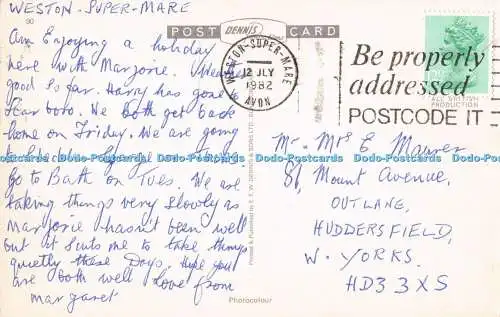 WESTON-SUPER-MARE
Am Enjoying a holiday
here with Marjorie. Weather
good so far. Harry has gone
Scarboro. We both get back
home on Friday. We are going
to
go to Bath on Tues. We are
taking things very slowly as
Marjorie hasn't been well
but it suits me to take things
quietly these Days. Hope you
are both well Love from
Margaret
90
POST CARD
DENNIS
WESTON-SUPER-MARE
12 JLY
1982
AVON
Be properly
addressed
POSTCODE IT
ALL BRITISH
PRODUCTION
Mr - Mrs E Maurer
81, Mount Avenue,
OUTLANE,
HUDDERSFIELD,
W. YORKS.
HD3 3XS
Photocolour
Dodo-Postcards Dodo-Postcards Dodo-Postcards Dodo-Postcards Dodo-Postcards Dodo-Postcards